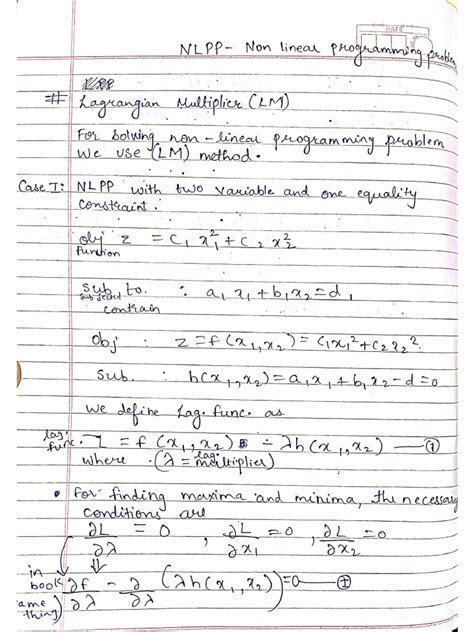 DATE
NLPP - Non linear programming problem
# Lagrangian Multiplier (LM)
For solving non-linear programming problem
we use (LM) method.
Case I: NLPP with two variable and one equality
constraint.
obj z = c₁ x₁² + c₂ x₂²
function
sub to. : a₁ x₁ + b₁ x₂ = d₁
contrain
Obj : z = f(x₁, x₂) = c₁x₁² + c₂x₂²
Sub. : h(x₁, x₂) = a₁x₁ + b₁x₂ - d = 0
We define Lag. func. as
lag. func. L = f(x₁, x₂) - λh(x₁, x₂) — ①
where (λ = lag. multiplier)
• For finding maxima and minima, the necessary
conditions are
∂L/∂λ = 0 , ∂L/∂x₁ = 0 , ∂L/∂x₂ = 0
in book ∂f/∂λ - ∂/∂λ (λh(x₁, x₂)) = 0 —
ame thing)